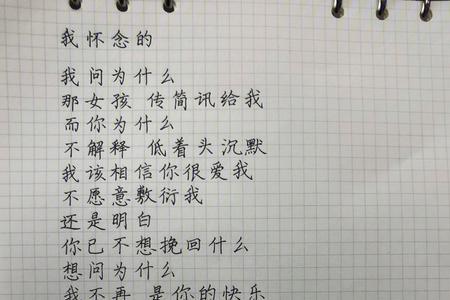 我怀念的
我问为什么
那女孩 传简讯给我
而你为什么
不解释 低着头沉默
我该相信你很爱我
不愿意敷衍我
还是明白
你已不想挽回什么
想问为什么
我不再 是你的快乐